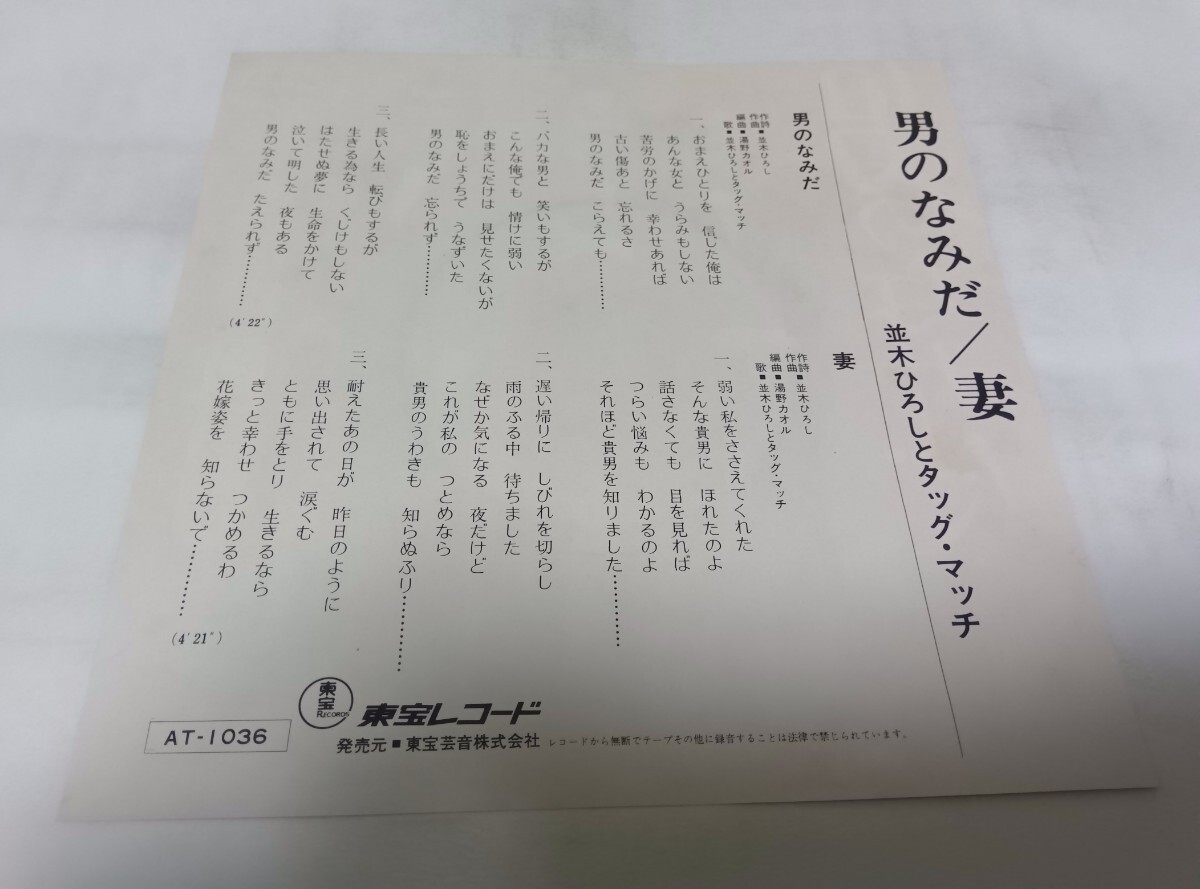 男のなみだ／妻
並木ひろしとタッグ・マッチ
男のなみだ
作詩■並木ひろし
作曲
編曲■湯野カオル
歌■並木ひろしとタッグ・マッチ
一、おまえひとりを　信じた俺は
あんな女と　うらみもしない
苦労のかげに　幸わせあれば
古い傷あと　忘れるさ
男のなみだ　こらえても…………
二、バカな男と　笑いもするが
こんな俺でも　情けに弱い
おまえにだけは　見せたくないが
恥をしょうちで　うなずいた
男のなみだ　忘られず…………
三、長い人生　転びもするが
生きる為なら　くじけもしない
はたせぬ夢に　生命をかけて
泣いて明した　夜もある
男のなみだ　たえられず…………
(4′22″)
妻
作詩■並木ひろし
作曲
編曲■湯野カオル
歌■並木ひろしとタッグ・マッチ
一、弱い私をささえてくれた
そんな貴男に　ほれたのよ
話さなくても　目を見れば
つらい悩みも　わかるのよ
それほど貴男を知りました…………
二、遅い帰りに　しびれを切らし
雨のふる中　待ちました
なぜか気になる　夜だけど
これが私の　つとめなら
貴男のうわきも　知らぬふり…………
三、耐えたあの日が　昨日のように
思い出されて　涙ぐむ
ともに手をとり　生きるなら
きっと幸わせ　つかめるわ
花嫁姿を　知らないで…………
(4′21″)
東宝
RECORDS
東宝レコード
AT-1036
発売元■東宝芸音株式会社
レコードから無断でテープその他に録音することは法律で禁じられています。